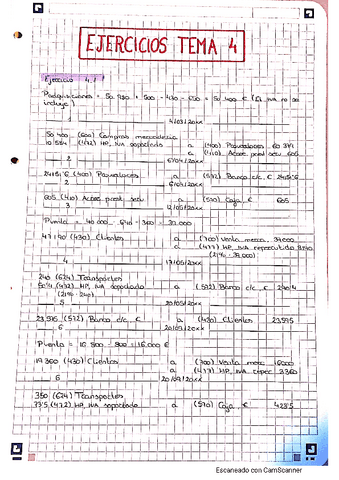 EJERCICIOS TEMA 4
Ejercicio 4.1
Padquisiciones = 50.950 + 500 - 430 - 620 = 50.400 € (El IVA no se
incluye)
1 4/03/20xx
50.400 (600) Compras mercaderías
10.584 (472) HP, IVA soportado a (400) Proveedores 60.379
a (410) Acree. prest. serv. 605
2 6/04/20xx
(400) Proveedores a (572) Banco c/c €
3 6/04/20xx
605 (410) Acree. prest. serv. a (570) Caja € 605
3 12/05/20xx
Pventa = 40.000 - 640 - 360 = 39.000
47.190 (430) Clientes a (700) Venta merca. 39000
a (477) HP, IVA repercutido 8190
(21% · 39.000)
4 17/05/20xx
240 (624) Transportes
50'4 (472) HP, IVA soportado a (572) Banco c/c € 290'4
(21% · 240)
5 20/05/20xx
23.595 (572) Banco c/c € a (430) Clientes 23595
6 20/09/20xx
Pventa = 16.900 - 900 = 16.000 €
19.360 (430) Clientes a (700) Venta merc. 16000
a (477) HP, IVA reperc. 3360
6 20/09/20xx
350 (624) Transportes
73'5 (472) HP, IVA soportado a (570) Caja €
Escaneado con CamScanner